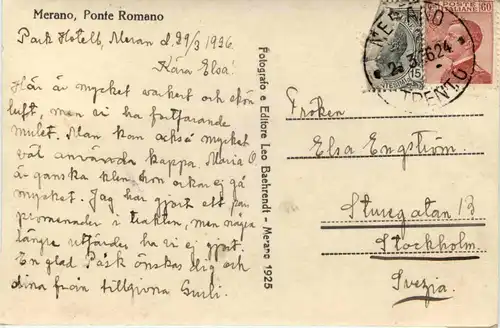 Merano, Ponte Romano
Park Hotell, Meran d. 29/3 1926.
Kära Elsa!
Här är mycket vackert och skön
luft, men vi ha fortfarande
mulet. Man kan också mycket
väl använda kappa. Maria
är ganska klen, hon orkar ej gå
mycket. Jag har gjort ett par
promenader i trakten, men några
längre utfärder ha vi ej gjort.
En glad Påsk önskas dig och
dina från tillgivna Gurli.
Fotografo e Editore Leo Baehrendt - Merano 1925
MERANO
TRENTO
POSTE ITALIANE
15
60
Fröken
Elsa Engström.
Sturegatan 13
Stockholm.
Svezia.